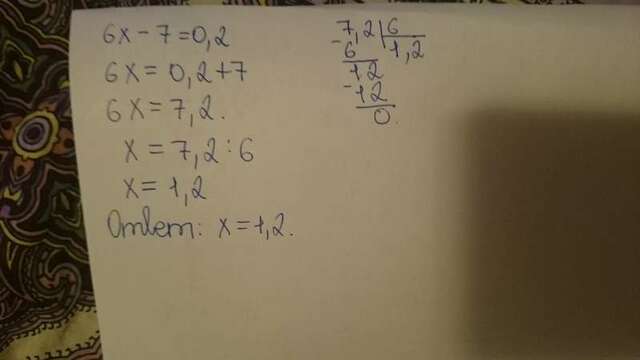 6x - 7 = 0,2
6x = 0,2 + 7
6x = 7,2.
x = 7,2 : 6
x = 1,2
Ответ: x = 1,2.
7,2 | 6
-6 | 1,2
12
-12
0